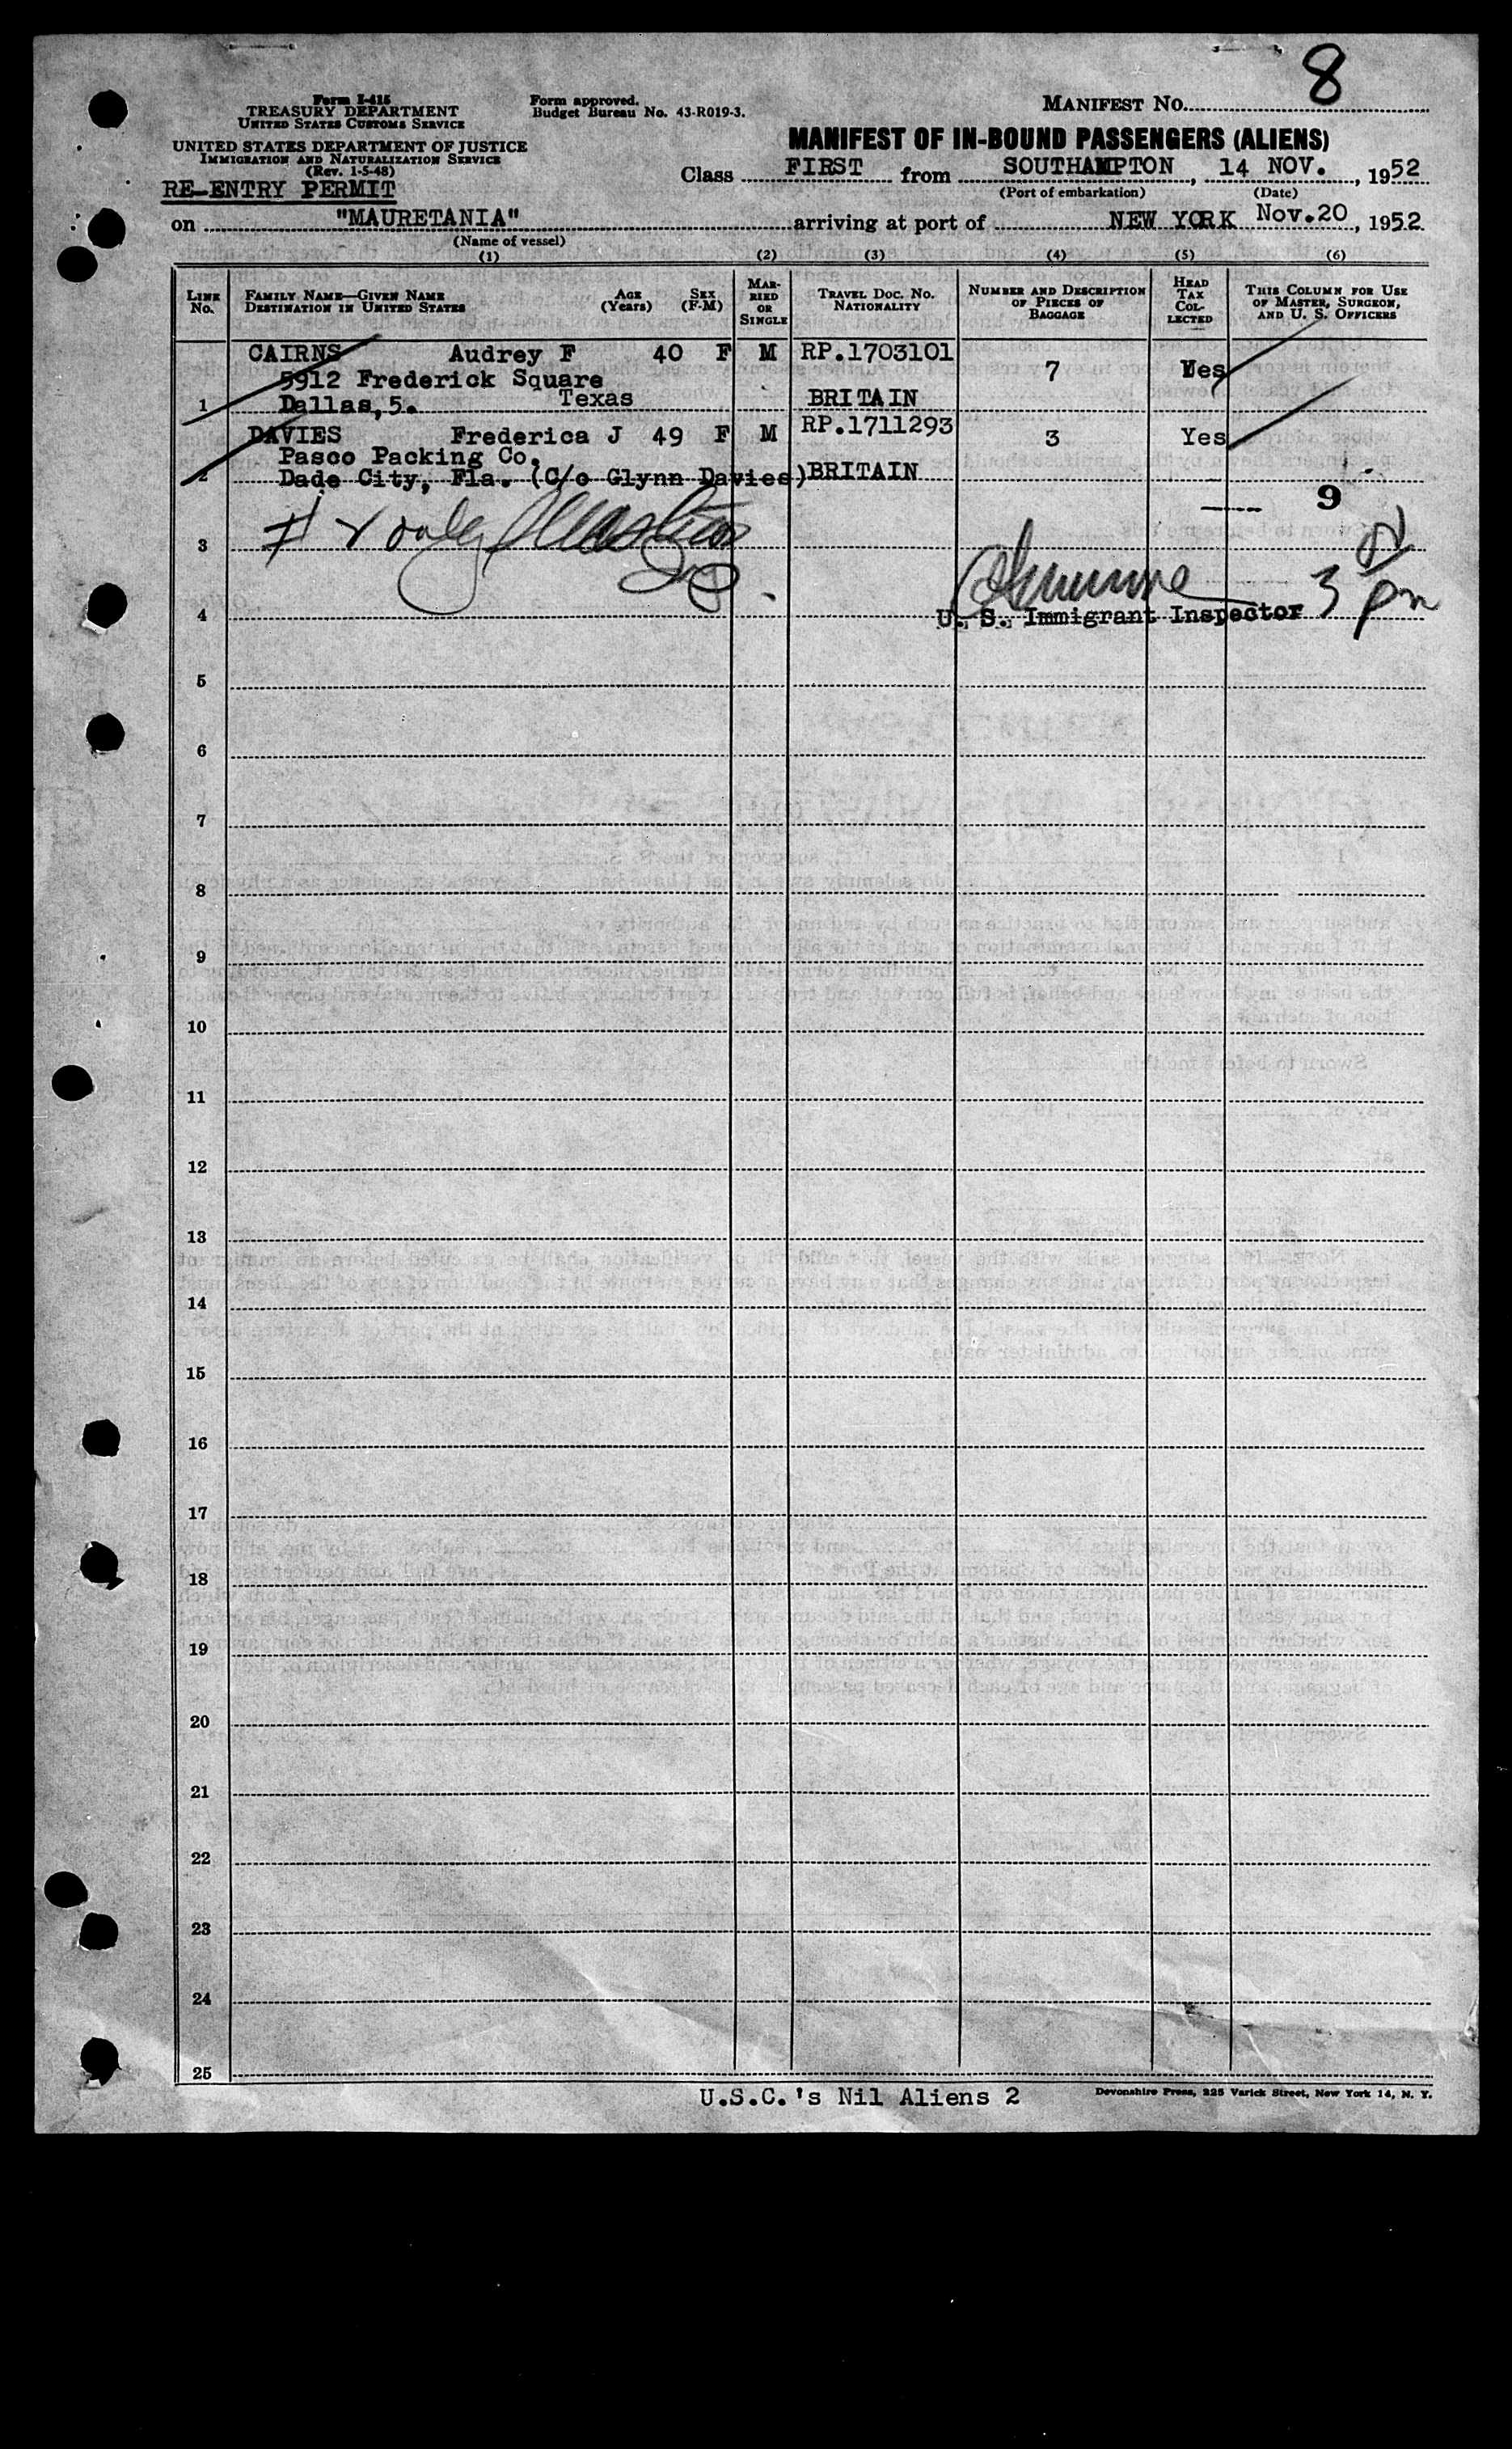 8
Form I-415
TREASURY DEPARTMENT
UNITED STATES CUSTOMS SERVICE
UNITED STATES DEPARTMENT OF JUSTICE
IMMIGRATION AND NATURALIZATION SERVICE
(Rev. 1-5-48)
RE-ENTRY PERMIT
Form approved.
Budget Bureau No. 43-R019-3.
MANIFEST NO.
MANIFEST OF IN-BOUND PASSENGERS (ALIENS)
Class FIRST from SOUTHAMPTON, 14 NOV., 1952
(Port of embarkation) (Date)
on "MAURETANIA" arriving at port of NEW YORK Nov.20, 1952
(Name of vessel)
(1) (2) (3) (4) (5) (6)
LINE No.
FAMILY NAME—GIVEN NAME
DESTINATION IN UNITED STATES
AGE (Years)
SEX (F-M)
MARRIED OR SINGLE
TRAVEL DOC. NO.
NATIONALITY
NUMBER AND DESCRIPTION OF PIECES OF BAGGAGE
HEAD TAX COLLECTED
THIS COLUMN FOR USE OF MASTER, SURGEON, AND U. S. OFFICERS
CAIRNS Audrey F 40 F M RP.1703101
5912 Frederick Square 7 Yes
1 Dallas,5. Texas BRITAIN
DAVIES Frederica J 49 F M RP.1711293 3 Yes
Pasco Packing Co.
2 Dade City, Fla. (C/o Glynn Davies) BRITAIN
9
3
3 pm
4 U. S. Immigrant Inspector
5
6
7
8
9
10
11
12
13
14
15
16
17
18
19
20
21
22
23
24
25
U.S.C.'s Nil Aliens 2
Devonshire Press, 225 Varick Street, New York 14, N. Y.